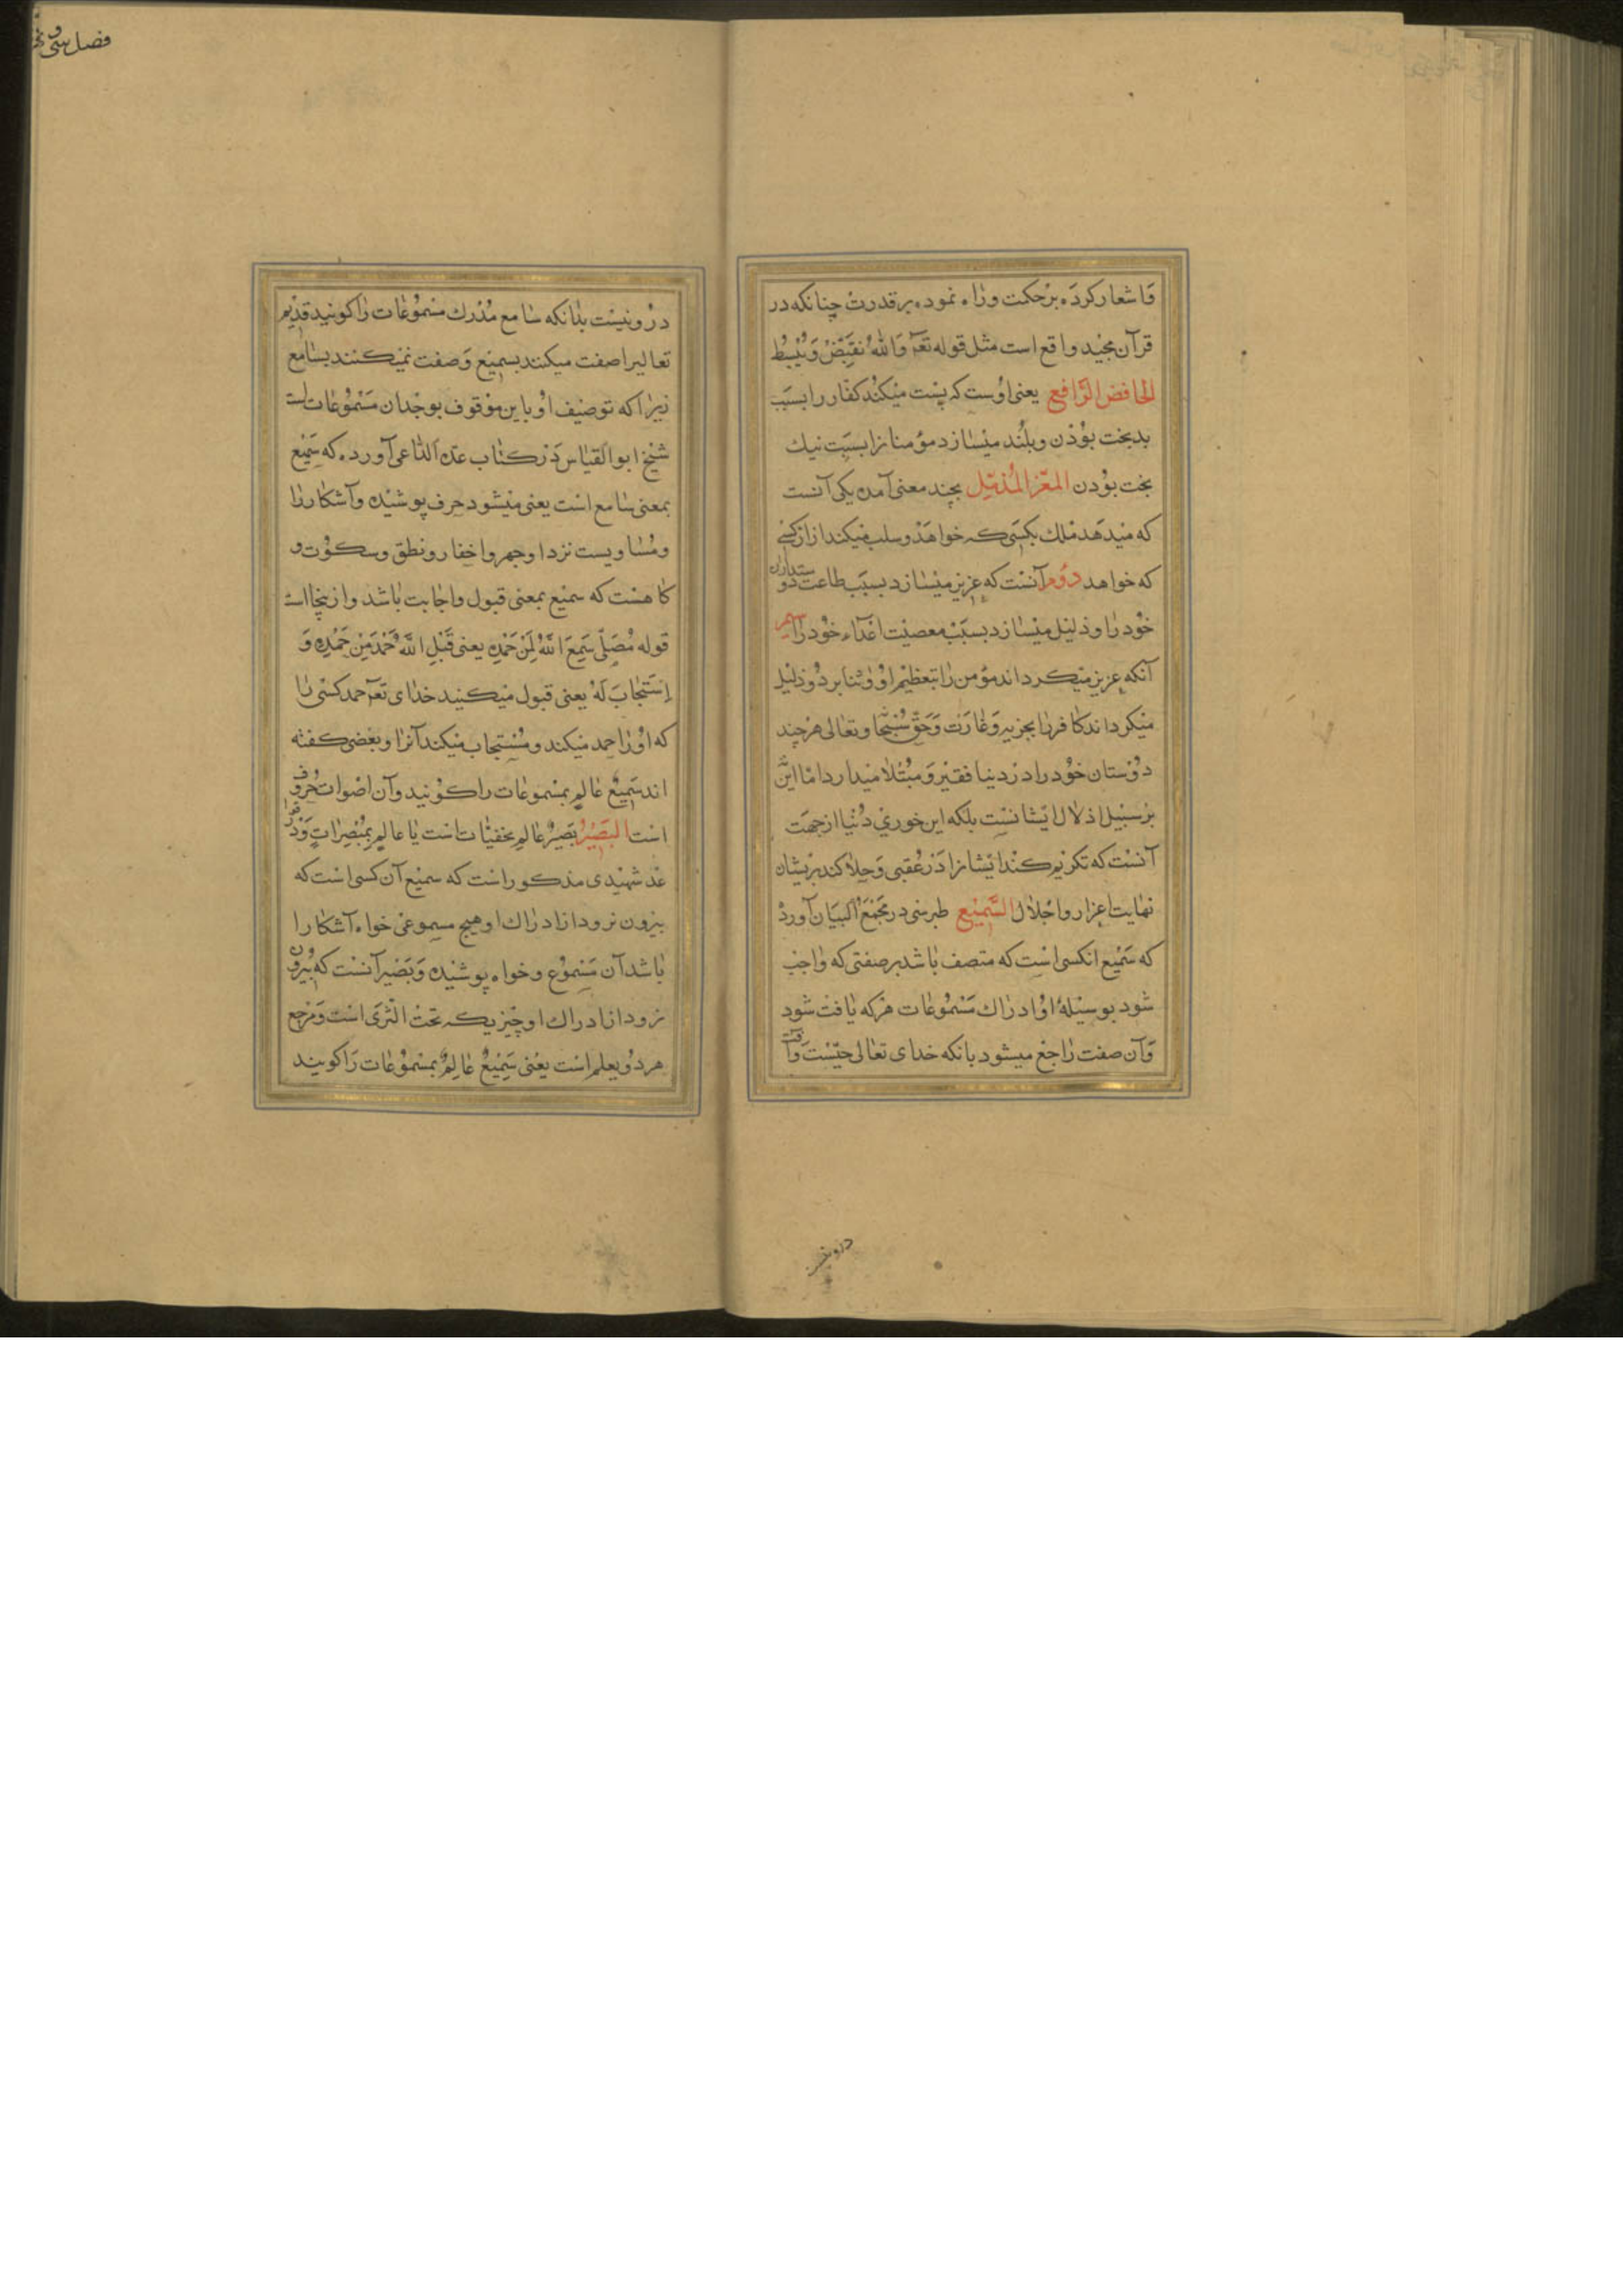 وَاشعار كردَه برْحكمت وراه نموده بر قدرتْ چنانكه در
قرآن مجيد واقع است مثل قوله تعَ وَاللهُ يَقبِضُ وَيَبْسُطُ
الخافض الرَّافع يعنى اوُست كه پسْت ميْكنُد كفّار را بسبَب
بدبخت بوُدْن وبلُند ميْسٰازد مؤمنانرا بسَبَب نيك
بخت بوُدن المعّز المُذِلّ بچند معنى آمده يكى آنست
كه ميْدهَد مُلك بكسَى كه خواهَدْ وسلب ميْكند از ازكسى
كه خواهد دوُم آنسْت كه عزيز ميْسٰازد بسبَب طاعت دوستداران
خوُد رٰا وذليْل ميْسٰازد بسبَبْ معصيْت اعْدآء خوُد رٰا
آنكه عزيز ميْكرداند مؤمن رٰا بتعظيْم اوْ وثنا بر دُوْ ذليْل
ميْكرداند كٰافر رٰا بجزيه وَغٰارَت وَحَقّ سُبْحٰا وتعٰالى هرْچند
دوُسْتان خوُد را درْ دنيا فقيْر وَ مبُتْلاٰ ميْدارد امّا ايْن
برْ سبيْل اذلال ايْشانسْت بلكه اين خوري دُنْيا ازجهَت
آنسْت كه تكريْم كنْد ايْشانرا دَرْ عُقبى وَ
نهٰايت اعزاز واجْلاٰل السَّميْع طبرسْى در مَجْمَعُ الْبَيَان آوردْ
كه سَميْع انكسى اسْت كه متصف بٰاشد بر صفتى كه وٰاجبْ
شوُد بوسيْلهٔ اوُ ادرٰاك مَسْموُعٰات هرْكه يٰافت شوُد
وَآن صفت رٰاجعْ ميشود بانكه خداى تعٰالى حيّسْت وآفت
دروُنيسْت بدٰانكه سٰامع مُدْرك مسْموُعٰات رٰا كوْنيد قديْم
تعاليرا صفت ميكنند بسميْع وَصفت نميْكنند بسٰامع
زيْرٰا كه توصْيف اوُ باين موْقوف بوجْدان مَسْموُعٰات است
شيْخ ابوالقيٰاس دَرْ كتٰاب عدّه الدّاعى آورده كه سَميْع
بمعنى سٰامع اسْت يعنى ميْشنود حرف پوشيْده وآشكٰار رٰا
ومُسٰاويست نزد او جهر واخفٰار ونطق وسكوُت و
كٰاه هسْت كه سميْع بمعنى قبول واجابت بٰاشد وازينجٰا است
قوله مُصَلّى سَمِعَ اللَّهُ لِمَنْ حَمْدِهِ يعنى قَبْلِ اللَّهُ حَمْدَ مَنْ حَمْدِهِ وَ
اِسْتَجٰابَ لَهُ يعنى قبول ميْكنيد خدٰاى تعَ حمد كسْى رٰا
كه اوُ رٰا حمد ميْكند ومُسْتجاب ميْكند آنرا وبعْضى كفته
اند سَميعٌ عٰالم بمسْموعٰات را كوُنيد وآن اصْوات حُروُف
اسْت البَصيرُ بَصيرٌ عٰالم بخفيّات اسْت يٰا عالم بمُبْصِرٰاتٍ وَدْر قواٰ
عدْ شهيْدى مذكور اسْت كه سميْع آن كسى اسْت كه
بيْرون نرود از ادرٰاك او هيچ مسموعى خواه آشكٰارا
بٰاشد آن مَسْموُع وخواه پوشيْده وَبَصْير آنسْت كه بيْروُن
نرود از ادراك او چيْزيكه تحْتْ الثّرى اسْت وَمَرْجع
هردوُ بعلم اسْت يعْنى سَميْعٌ عٰالِمٌ بمسْموُعٰات رَا كويند
دروُنيسْت